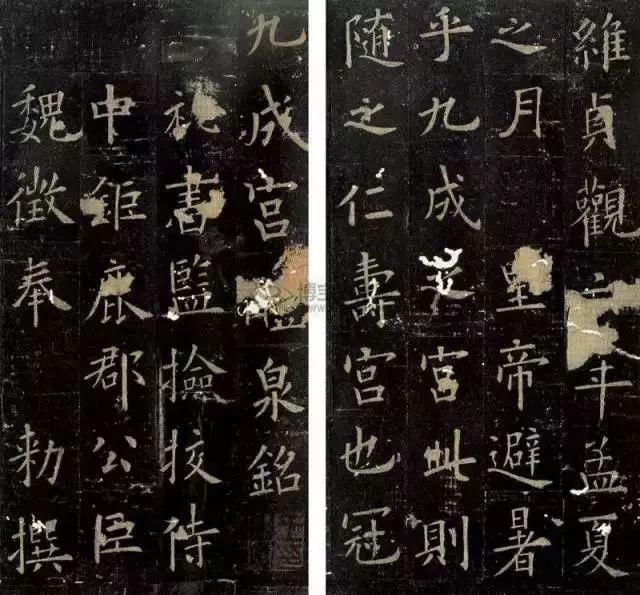 九成宮醴泉銘
祕書監撿挍侍
中鉅鹿郡公臣
魏徵奉 勅撰
維貞觀六年孟夏
之月 皇帝避暑
乎九成之宮此則
隨之仁壽宮也冠